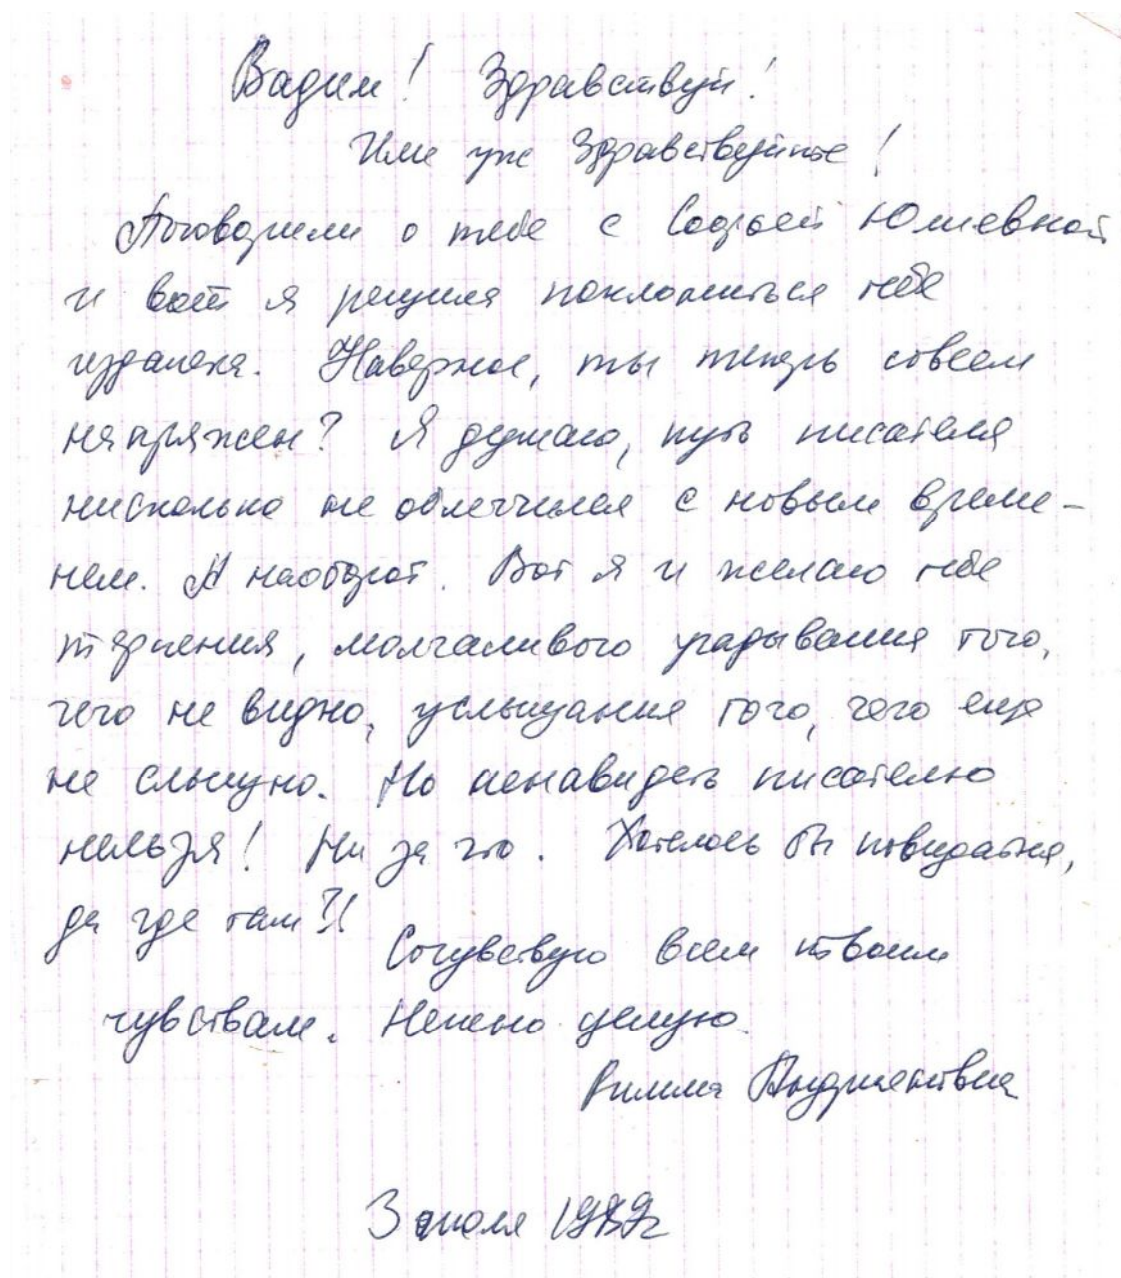 Вадим! Здравствуй!
Или уже Здравствуйте!
Поговорили о тебе с Софьей Юльевной
и вот я решила поклониться тебе
издалека. Наверное, ты теперь совсем
напряжен? Я думаю, путь писателя
нисколько не облегчился с новым време-
нем. А наоборот. Вот я и желаю тебе
терпения, молчаливого угадывания того,
чего не видно, услышания того, чего еще
не слышно. Но ненавидеть писателю
нельзя! Ни за что. Хотелось бы повидаться,
да где там?!!
Сочувствую всем твоим
чувствам. Нежно целую.
Римма
3 июля 1989г